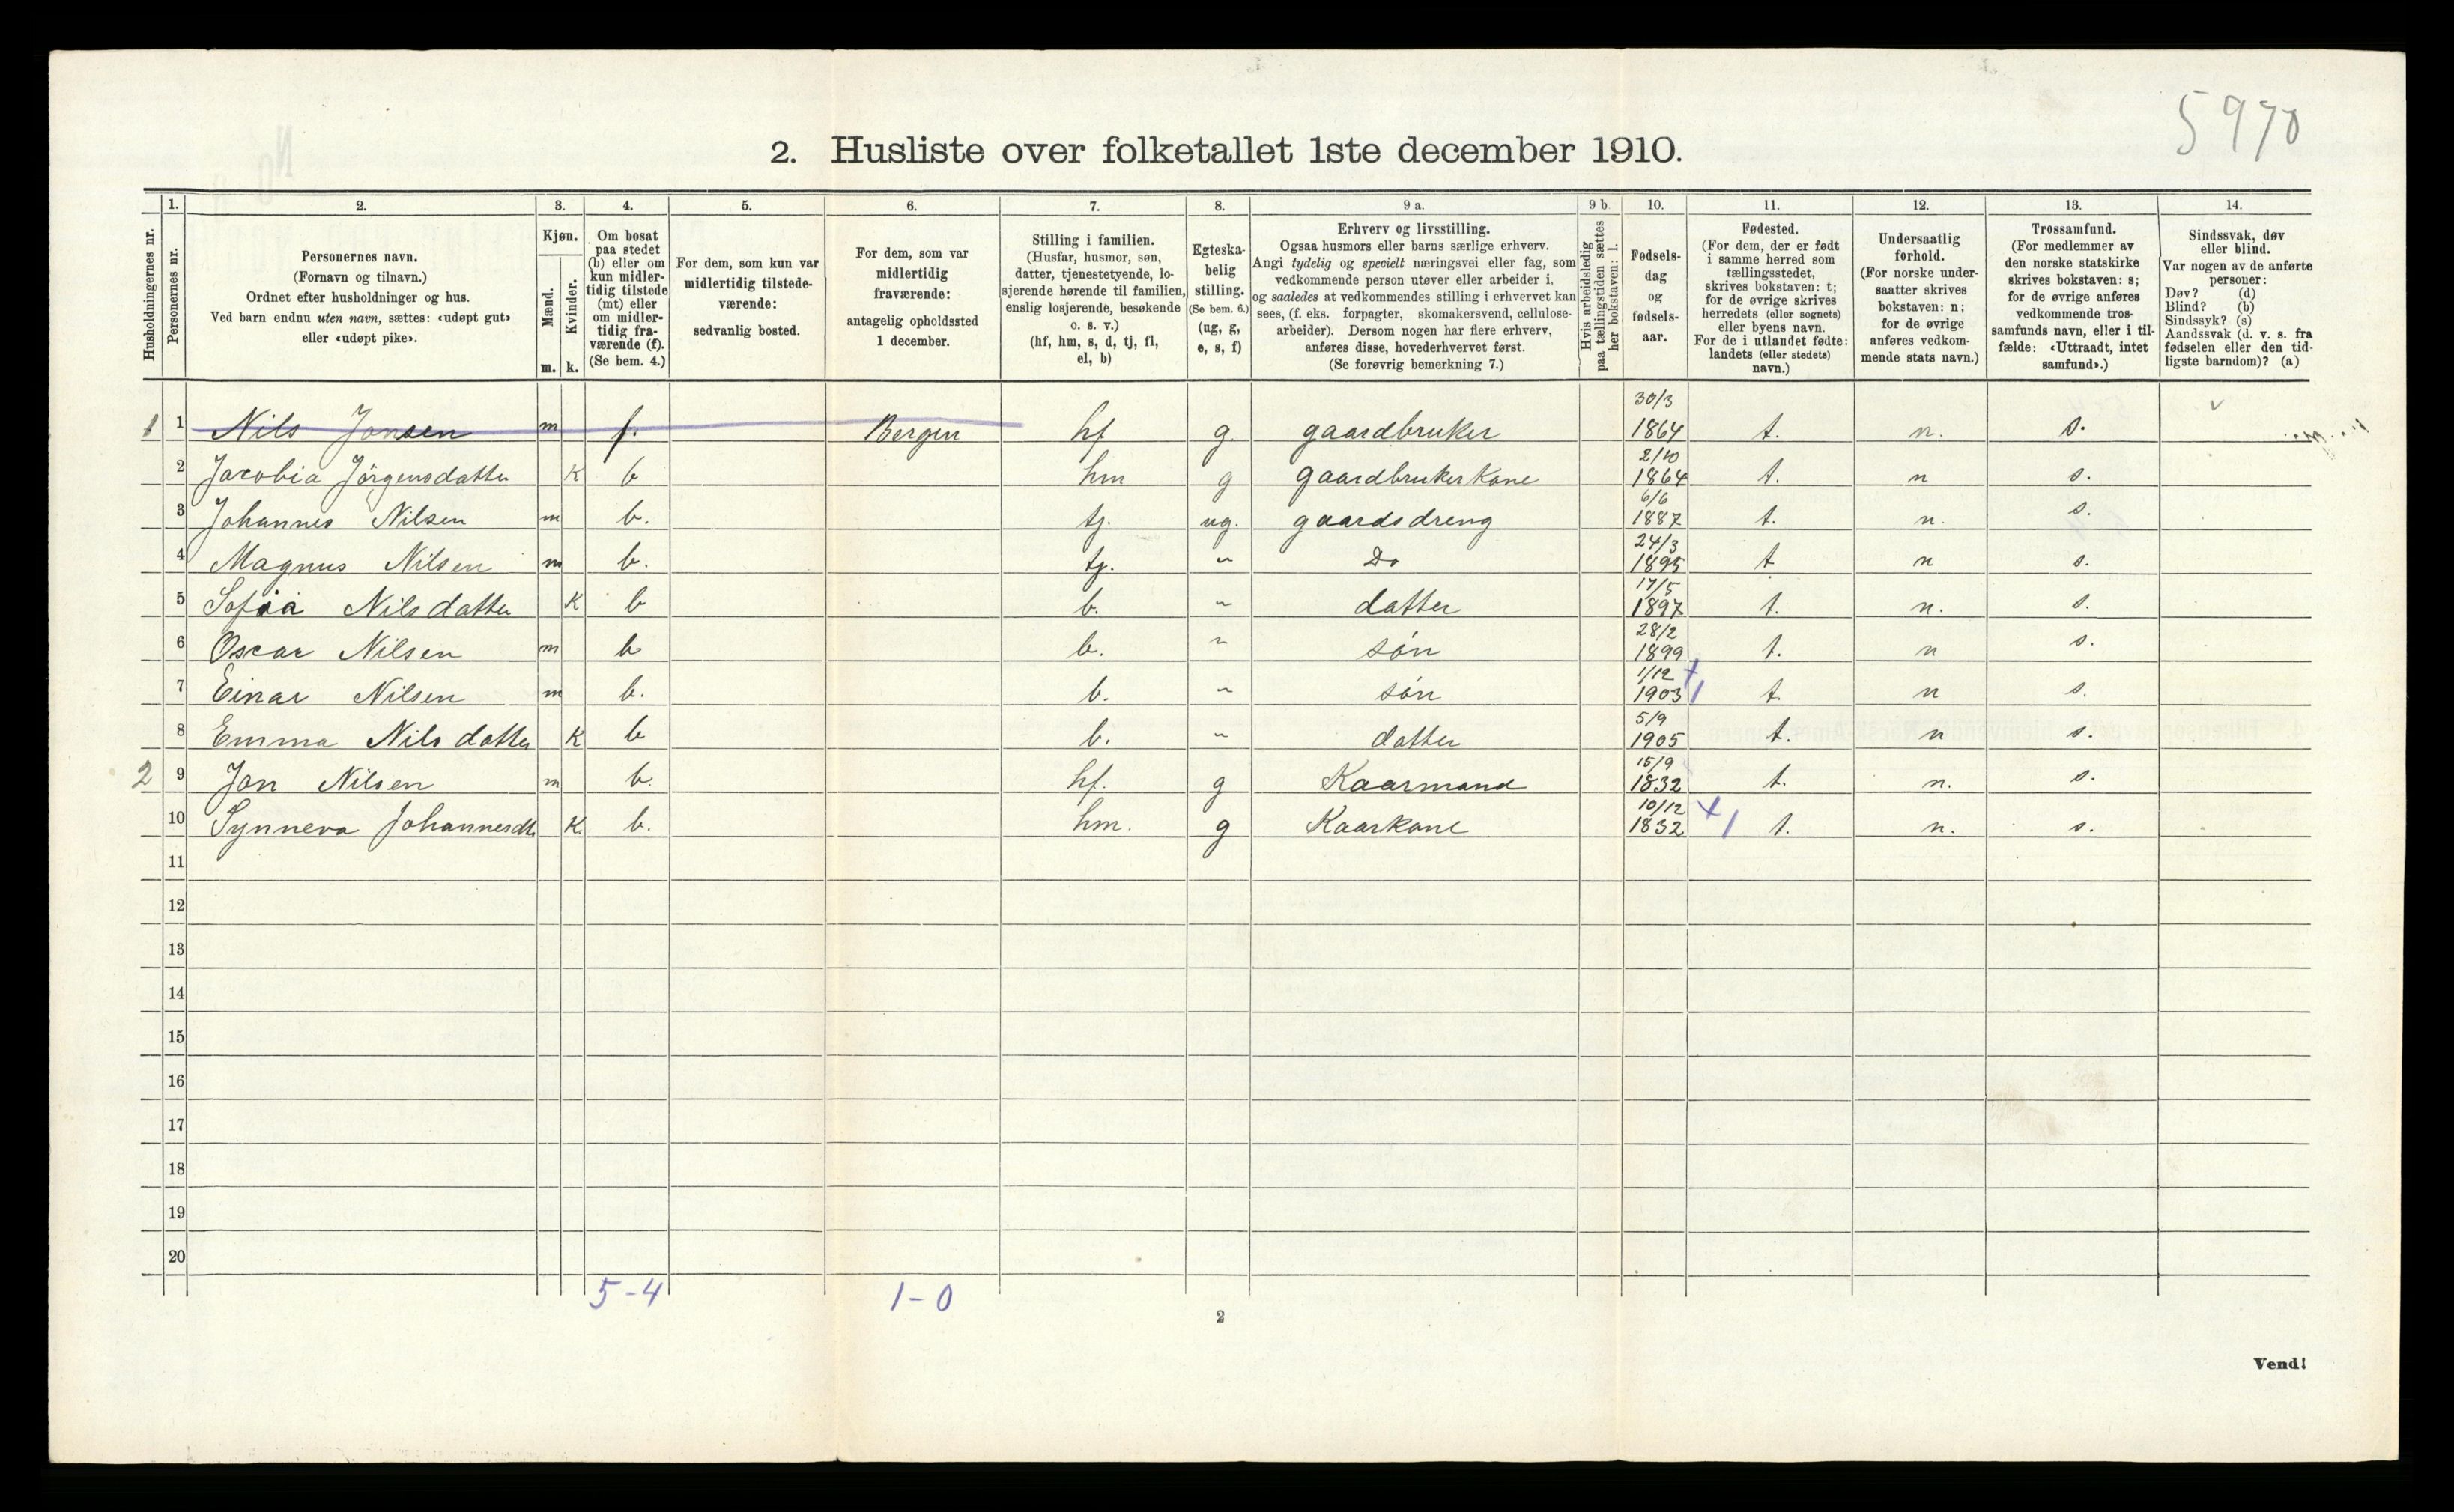 5970
2. Husliste over folketallet 1ste december 1910.
Husholdningernes nr.
1.
Personernes nr.
2.
Personernes navn.
(Fornavn og tilnavn.)
Ordnet efter husholdninger og hus.
Ved barn endnu uten navn, sættes: «udøpt gut»
eller «udøpt pike».
3.
Kjøn.
Mænd.
Kvinder.
m. k.
4.
Om bosat
paa stedet
(b) eller om
kun midler-
tidig tilstede
(mt) eller
om midler-
tidig fra-
værende (f).
(Se bem. 4.)
5.
For dem, som kun var
midlertidig tilstede-
værende:
sedvanlig bosted.
6.
For dem, som var
midlertidig
fraværende:
antagelig opholdssted
1 december.
7.
Stilling i familien.
(Husfar, husmor, søn,
datter, tjenestetyende, lo-
sjerende hørende til familien,
enslig losjerende, besøkende
o. s. v.)
(hf, hm, s, d, tj, fl,
el, b)
8.
Egteska-
belig
stilling.
(Se bem. 6.)
(ug, g,
e, s, f)
9 a.
Erhverv og livsstilling.
Ogsaa husmors eller barns særlige erhverv.
Angi tydelig og specielt næringsvei eller fag, som
vedkommende person utøver eller arbeider i,
og saaledes at vedkommendes stilling i erhvervet kan
sees, (f. eks. forpagter, skomakersvend, cellulose-
arbeider). Dersom nogen har flere erhverv,
anføres disse, hovederhvervet først.
(Se forøvrig bemerkning 7.)
9 b.
Hvis arbeidsledig
paa tællingstiden sættes
her bokstaven: l.
10.
Fødsels-
dag
og
fødsels-
aar.
11.
Fødested.
(For dem, der er født
i samme herred som
tællingsstedet,
skrives bokstaven: t;
for de øvrige skrives
herredets (eller sognets)
eller byens navn.
For de i utlandet fødte:
landets (eller stedets)
navn.)
12.
Undersaatlig
forhold.
(For norske under-
saatter skrives
bokstaven: n;
for de øvrige
anføres vedkom-
mende stats navn.)
13.
Trossamfund.
(For medlemmer av
den norske statskirke
skrives bokstaven: s;
for de øvrige anføres
vedkommende tros-
samfunds navn, eller i til-
fælde: «Uttraadt, intet
samfund».)
14.
Sindssvak, døv
eller blind.
Var nogen av de anførte
personer:
Døv? (d)
Blind? (b)
Sindssyk? (s)
Aandssvak (d. v. s. fra
fødselen eller den tid-
ligste barndom)? (a)
1 1 Nils Jonsen m f. Bergen hf g gaardbruker 30/3 1864 t. n. s.
2 Jacobia Jörgensdatter K b hm g gaardbrukerkone 2/10 1864 t. n s.
3 Johannes Nilsen m b. tj. ug. gaardsdreng 6/6 1887 t. n. s.
4 Magnus Nilsen m b. tj. " Do 24/3 1895 t n s.
5 Sofia Nilsdatter K b b. " datter 17/5 1897 t. n. s.
6 Oscar Nilsen m b b. " søn 28/2 1899 t. n s.
7 Einar Nilsen m b. b. " søn 1/12 1903 t. n s.
8 Emma Nilsdatter K b b. " datter 5/9 1905 t. n s.
2 9 Jon Nilsen m b. hf. g Kaarmand 15/9 1832 t. n. s.
10 Synneva Johannesdt. K b. hm. g Kaarkone 10/12 1832 t. n. s.
11
12
13
14
15
16
17
18
19
20
5-4 1-0
2
Vend!